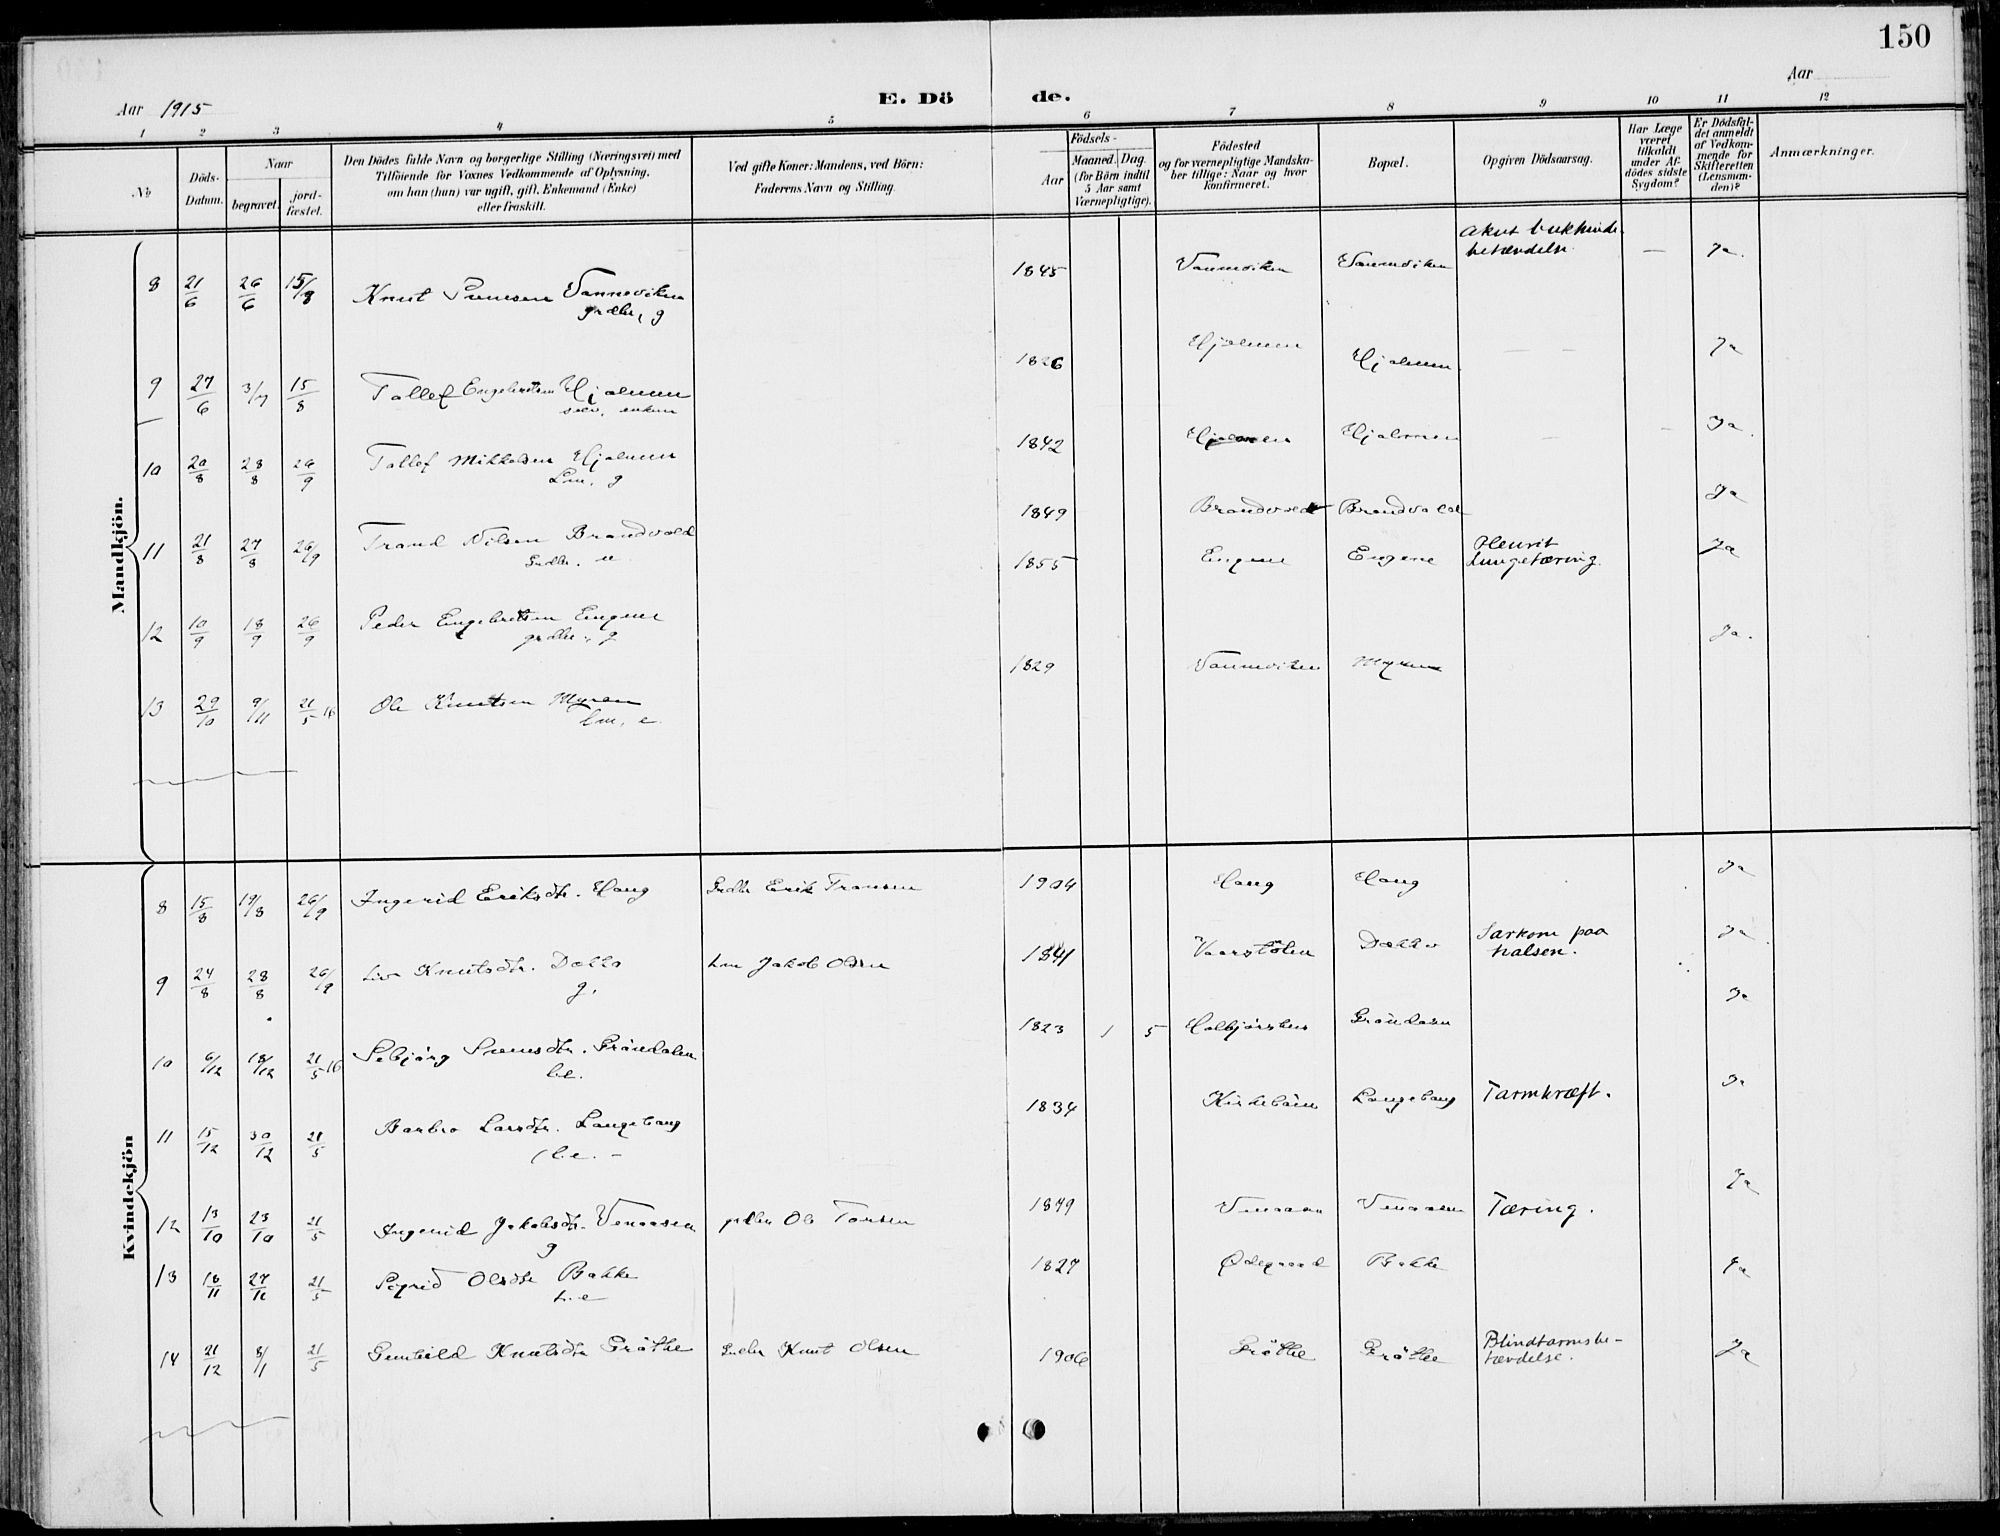 150
Aar 1915
E. Dö de.
Aar
1 2 3 4 5 6 7 8 9 10 11 12
No
Döds-
Datum.
Naar
begravet.
jord-
fæstet.
Den Dödes fulde Navn og borgerlige Stilling (Næringsvei) med
Tilföiende for Voxnes Vedkommende af Oplysning,
om han (hun) var ugift, gift, Enkemand (Enke)
eller fraskilt.
Ved gifte Koner: Mandens, ved Börn:
Faderens Navn og Stilling.
Födsels-
Aar
Maaned. Dag.
(for Börn indtil
5 Aar samt
Værnepligtige).
Födested
og for værnepligtige Mandska-
ber tillige: Naar og hvor
konfirmeret.
Bopæl.
Opgiven Dödsaarsag.
Har Læge
været
tilkaldt
under Af-
dödes sidste
Sygdom?
Er Dödsfal-
det anmeldt
af Vedkom-
mende for
Skifteretten
(Lensman-
den)?
Anmærkninger.
Mandkjön.
8 21/6 26/6 15/8 Knut Svensen Vanneviken 1845 Vanneviken Vanneviken akut bukhinde-
betændelse. — Ja.
grdbr, g
9 27/6 3/7 15/8 Tollef Engebretsen Hjalmen 1826 Hjalmen Hjalmen — — Ja
selv, enkem
10 20/8 28/8 26/9 Tollef Mikkelsen Hjalmen 1842 Hjalmen Hjalmen — — Ja.
Lm, g
11 21/8 27/8 26/9 Trond Nilsen Brandvold 1849 Brandvold Brandvold Ja
Grdbr. u.
12 10/9 18/9 26/9 Peder Engebretsen Engene 1855 Engene Engene Pleurit
Lungetæring. Ja
grdbr., g
13 29/10 9/11 21/5 16 Ole Knutsen Myren 1829 Vanneviken Myren Ja.
Lm, e.
Kvindekjön
8 15/8 19/8 26/9 Ingerid Eriksdtr. Haug Grdbr Erik Tronsen 1904 Haug Haug Ja
9 24/8 28/8 26/9 Liv Knutsdtr. Dokko Lm Jakob Olsen 1841 Vaarstölen Dokko Sarkom paa
halsen. Ja.
g.
10 6/12 18/12 21/5 16 Sebjörg Svensdtr. Gröndalen 1823 1 5 Halbjörshus Gröndalen Ja
l.e.
11 15/12 30/12 21/5 Barbro Larsdtr. Langehaug 1834 Kirkeböen Langehaug Tarmkræft. Ja
l.e. –
12 13/10 23/10 21/5 Ingerid Jakobsdtr. Venaasen grdbr Ole Torsen 1849 Venaasen Venaasen Tæring. Ja
g
13 18/11 27/11 21/5 Sigrid Olsdtr Bakke 1827 Ødegaard Bakke Ja
L.e
14 21/12 8/1 21/5 Gunhild Knutsdtr Gröthe Grdbr Knut Olsen 1906 Gröthe Gröthe Blindtarmsbe-
tændelse. Ja